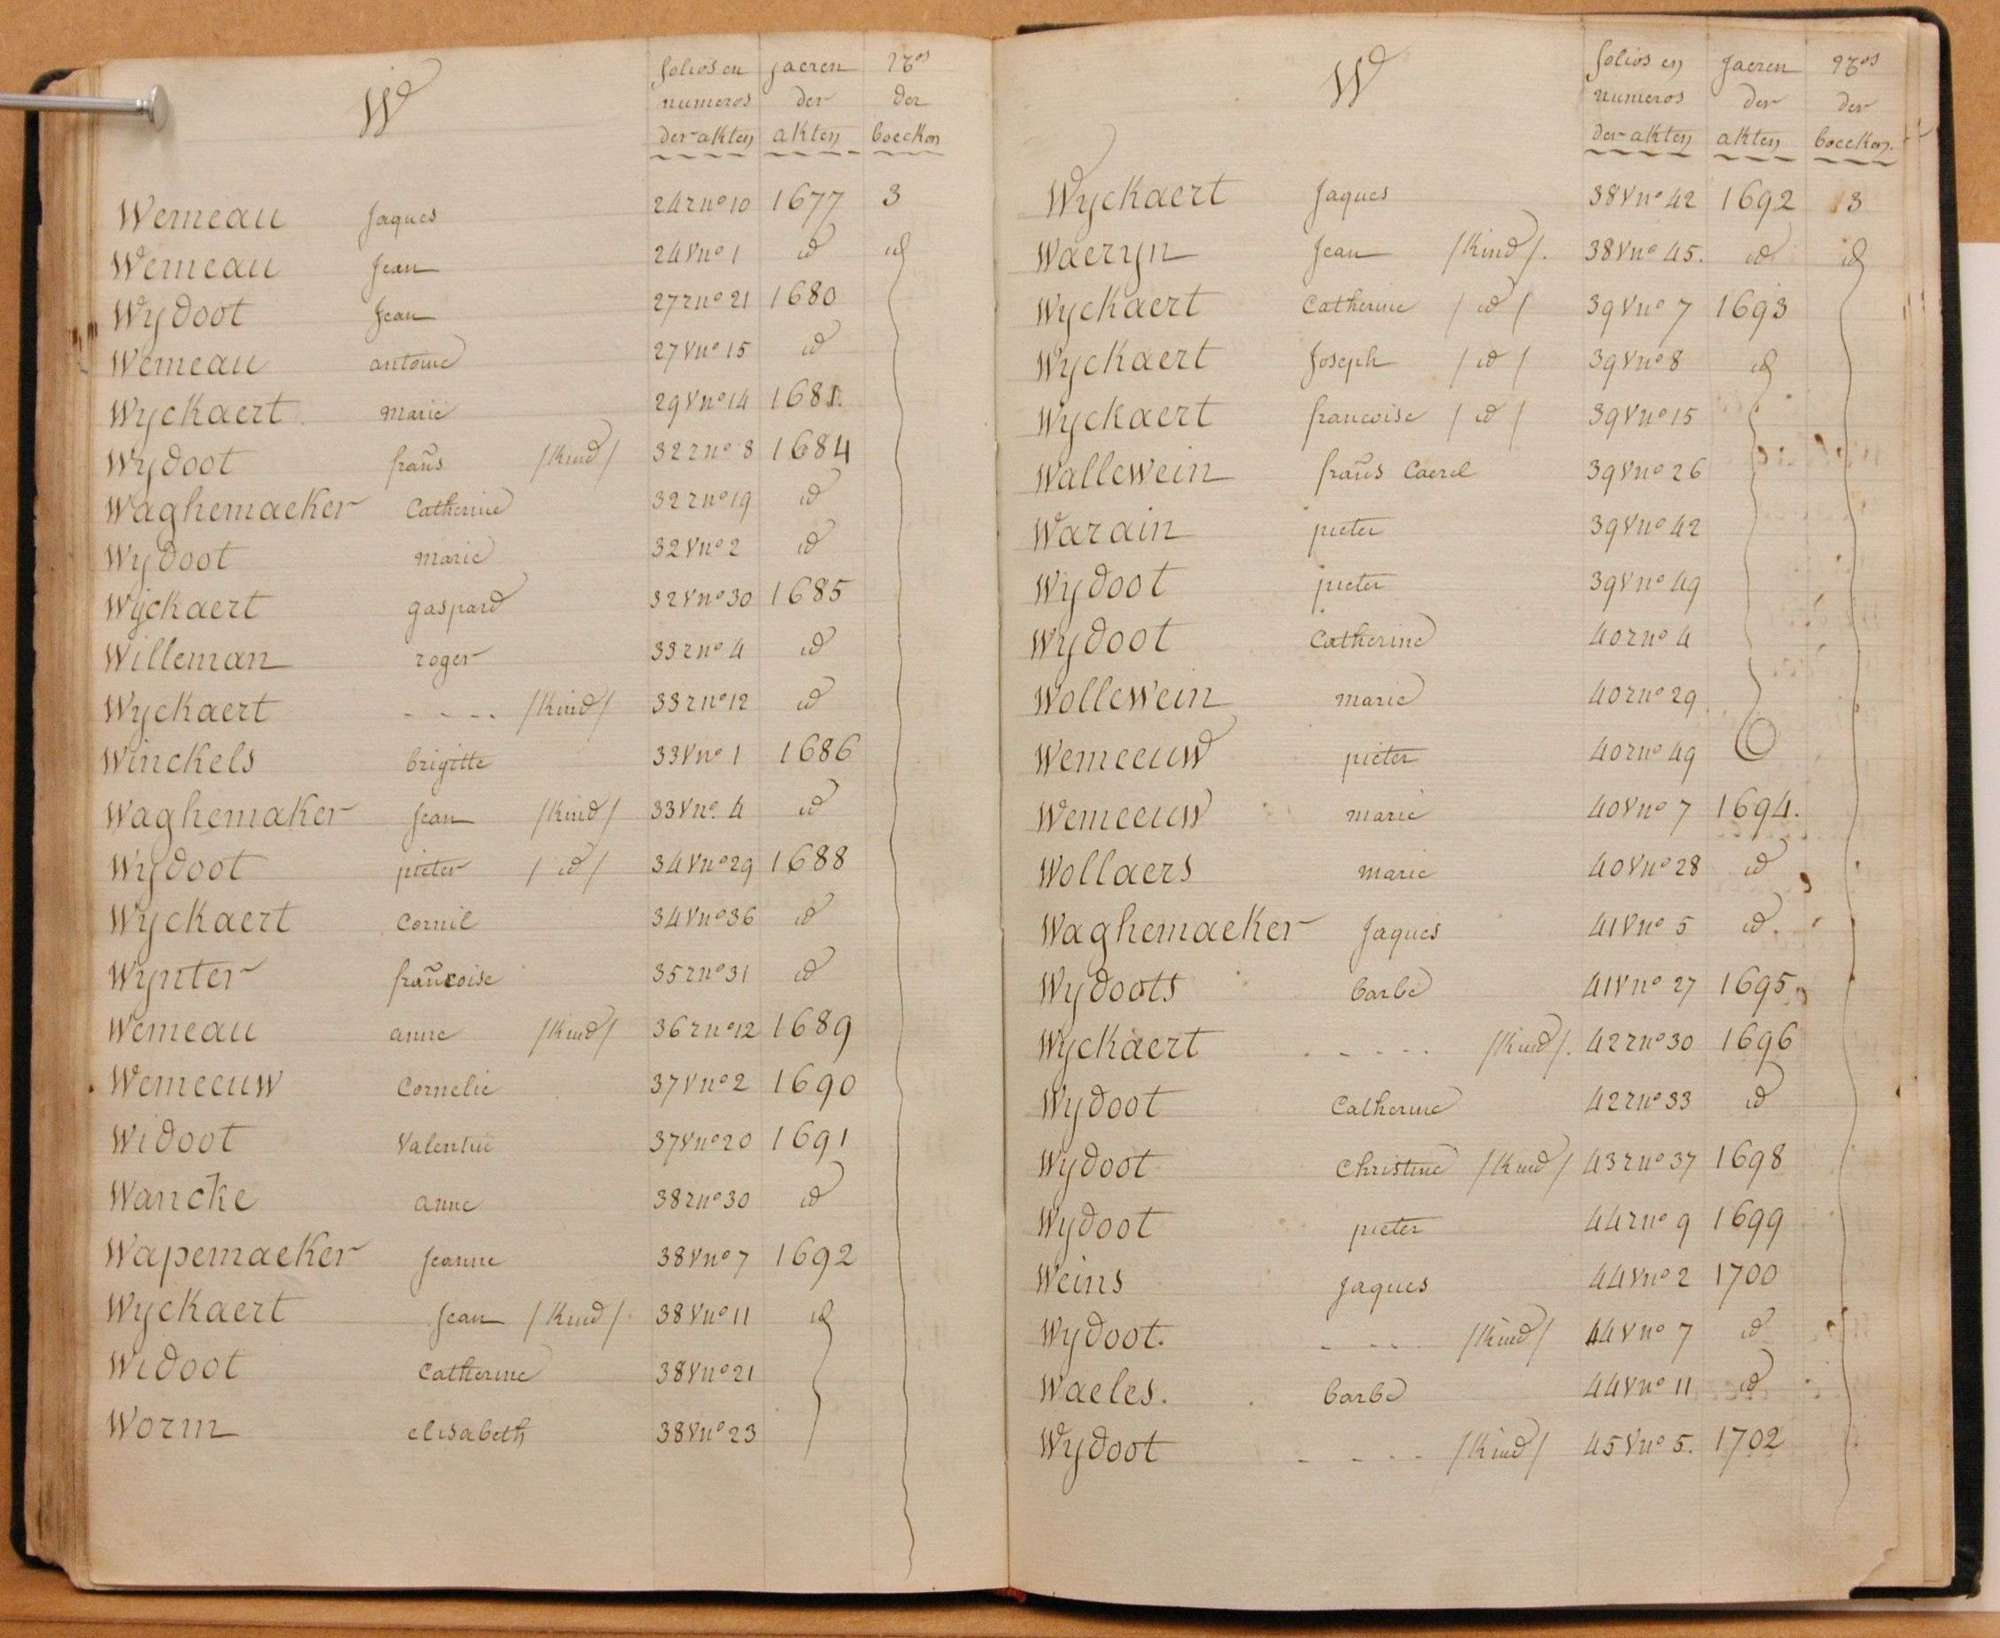 W
folios en jaeren nos
numeros der der
der akten akten boecken
Wemeau Jaques 24 r no 10 1677 3
Wemeau Jean 24 v no 1 id id
Wydoot Jean 27 r no 21 1680
Wemeau antoine 27 v no 15 id
Wyckaert marie 29 v no 14 1681.
Wydoot frans /kind/ 32 r no 8 1684
Waghemaeker Catherine 32 r no 19 id
Wydoot marie 32 v no 2 id
Wyckaert gaspard 32 v no 30 1685
Willeman roger 33 r no 4 id
Wyckaert - - - - /kind/ 33 r no 12 id
Winckels brigitte 33 v no 1 1686
Waghemaker Jean /kind/ 33 v no 4 id
Wydoot pieter /id/ 34 v no 29 1688
Wyckaert Cornil 34 v no 36 id
Wynter francoise 35 r no 31 id
Wemeau anne /kind/ 36 r no 12 1689
Wemeeuw Cornelie 37 v no 2 1690
Widoot Valentin 37 v no 20 1691
Wancke anne 38 r no 30 id
Wapemaeker Jeanne 38 v no 7 1692
Wyckaert Jean /kind/ 38 v no 11 id
Widoot Catherine 38 v no 21
Worm elisabeth 38 v no 23
W
folios en jaeren nos
numeros der der
der akten akten boecken.
Wyckaert Jaques 38 v no 42 1692 3
Waeryn Jean /kind/. 38 v no 45. id id
Wyckaert Catherine /id/ 39 v no 7 1693
Wyckaert Joseph /id/ 39 v no 8 id
Wyckaert francoise /id/ 39 v no 15
Wallewein frans Caerel 39 v no 26
Warain pieter 39 v no 42
Wydoot pieter 39 v no 49
Wydoot Catherine 40 r no 4
Wollewein marie 40 r no 29
Wemeeuw pieter 40 r no 49
Wemeeuw marie 40 v no 7 1694.
Wollaers marie 40 v no 28 id
Waghemaeker Jaques 41 v no 5 id.
Wydoots barbe 41 v no 27 1695
Wyckaert - - - - - /kind/. 42 r no 30 1696
Wydoot Catherine 42 r no 33 id
Wydoot Christine /kind/ 43 r no 37 1698
Wydoot pieter 44 r no 9 1699
Weins Jaques 44 v no 2 1700
Wydoot. - - - - /kind/ 44 v no 7 id
Waeles. barbe 44 v no 11 id
Wydoot - - - - /kind/ 45 v no 5. 1702